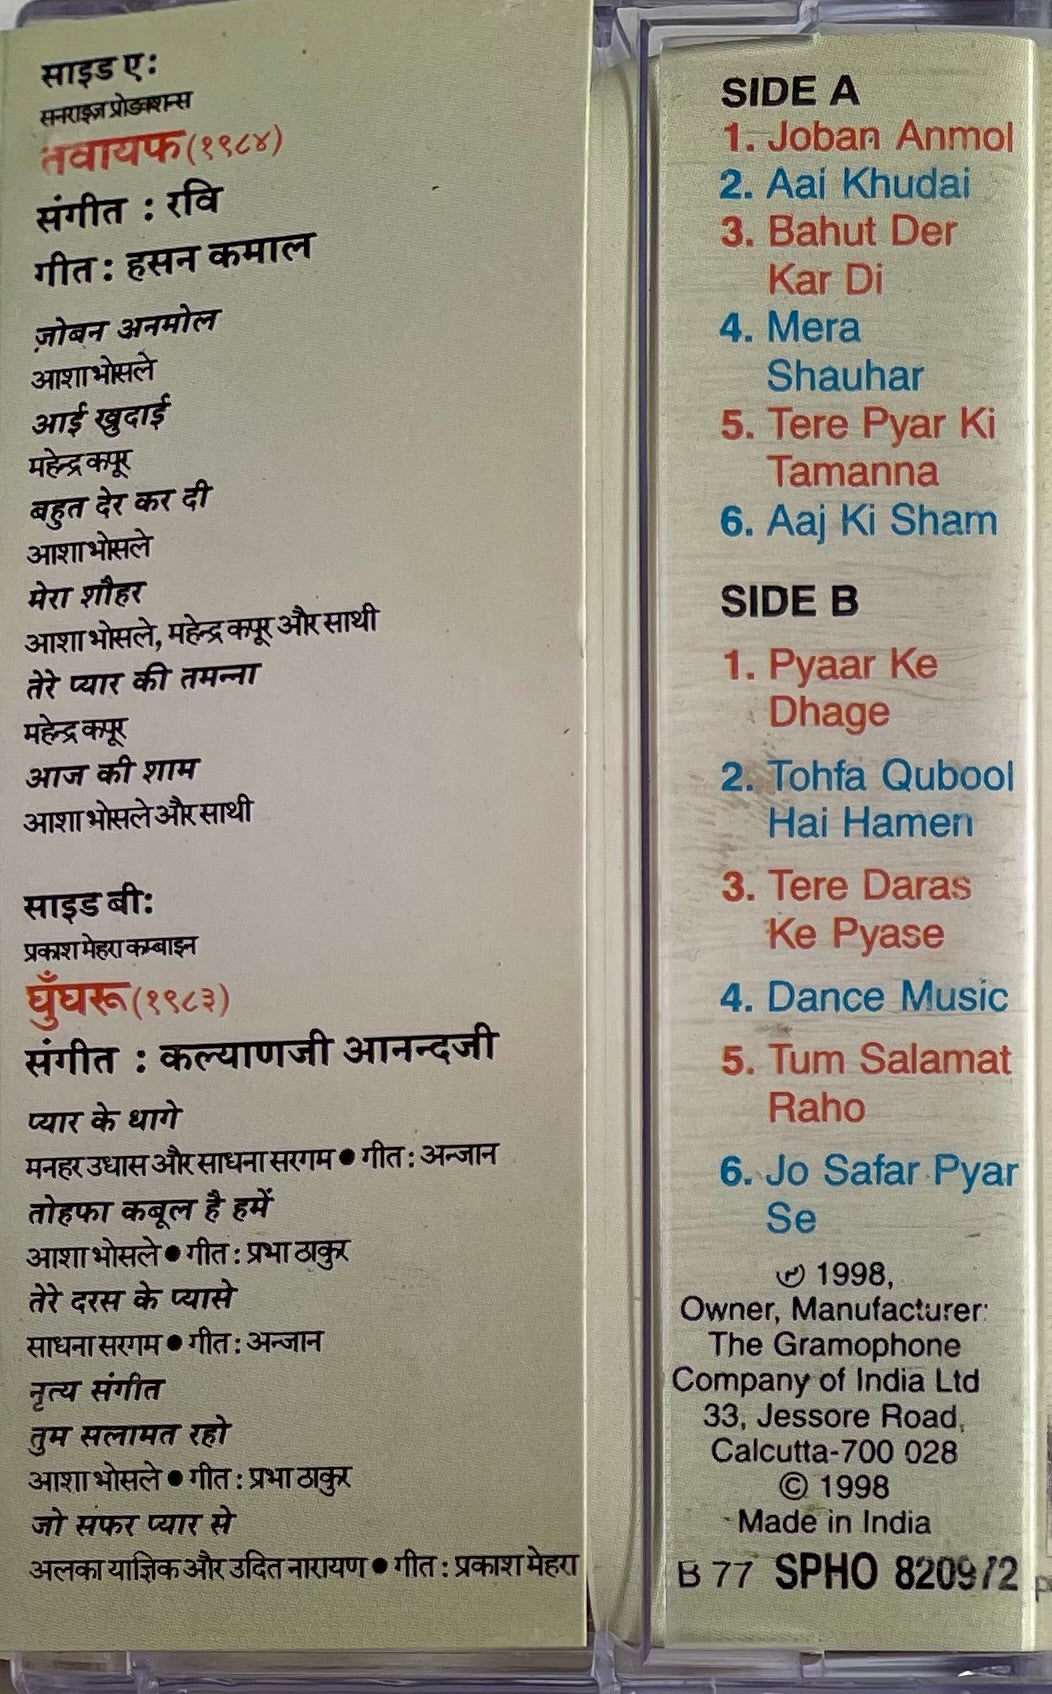 साइड ए:
सनराइज़ प्रोडक्शन्स
तवायफ (१९८४)
संगीत : रवि
गीत : हसन कमाल
ज़ोबन अनमोल
आशा भोसले
आई खुदाई
महेन्द्र कपूर
बहुत देर कर दी
आशा भोसले
मेरा शौहर
आशा भोसले, महेन्द्र कपूर और साथी
तेरे प्यार की तमन्ना
महेन्द्र कपूर
आज की शाम
आशा भोसले और साथी
साइड बी:
प्रकाश मेहरा कम्बाइन
घुँघरू (१९८३)
संगीत : कल्याणजी आनन्दजी
प्यार के धागे
मनहर उधास और साधना सरगम ● गीत : अन्जान
तोहफा कबूल है हमें
आशा भोसले ● गीत : प्रभा ठाकुर
तेरे दरस के प्यासे
साधना सरगम ● गीत : अन्जान
नृत्य संगीत
तुम सलामत रहो
आशा भोसले ● गीत : प्रभा ठाकुर
जो सफर प्यार से
अलका याज्ञिक और उदित नारायण ● गीत : प्रकाश मेहरा
SIDE A
1. Joban Anmol
2. Aai Khudai
3. Bahut Der
Kar Di
4. Mera
Shauhar
5. Tere Pyar Ki
Tamanna
6. Aaj Ki Sham
SIDE B
1. Pyaar Ke
Dhage
2. Tohfa Qubool
Hai Hamen
3. Tere Daras
Ke Pyase
4. Dance Music
5. Tum Salamat
Raho
6. Jo Safar Pyar
Se
℗ 1998,
Owner, Manufacturer:
The Gramophone
Company of India Ltd
33, Jessore Road,
Calcutta-700 028
© 1998
Made in India
B 77 SPHO 820972